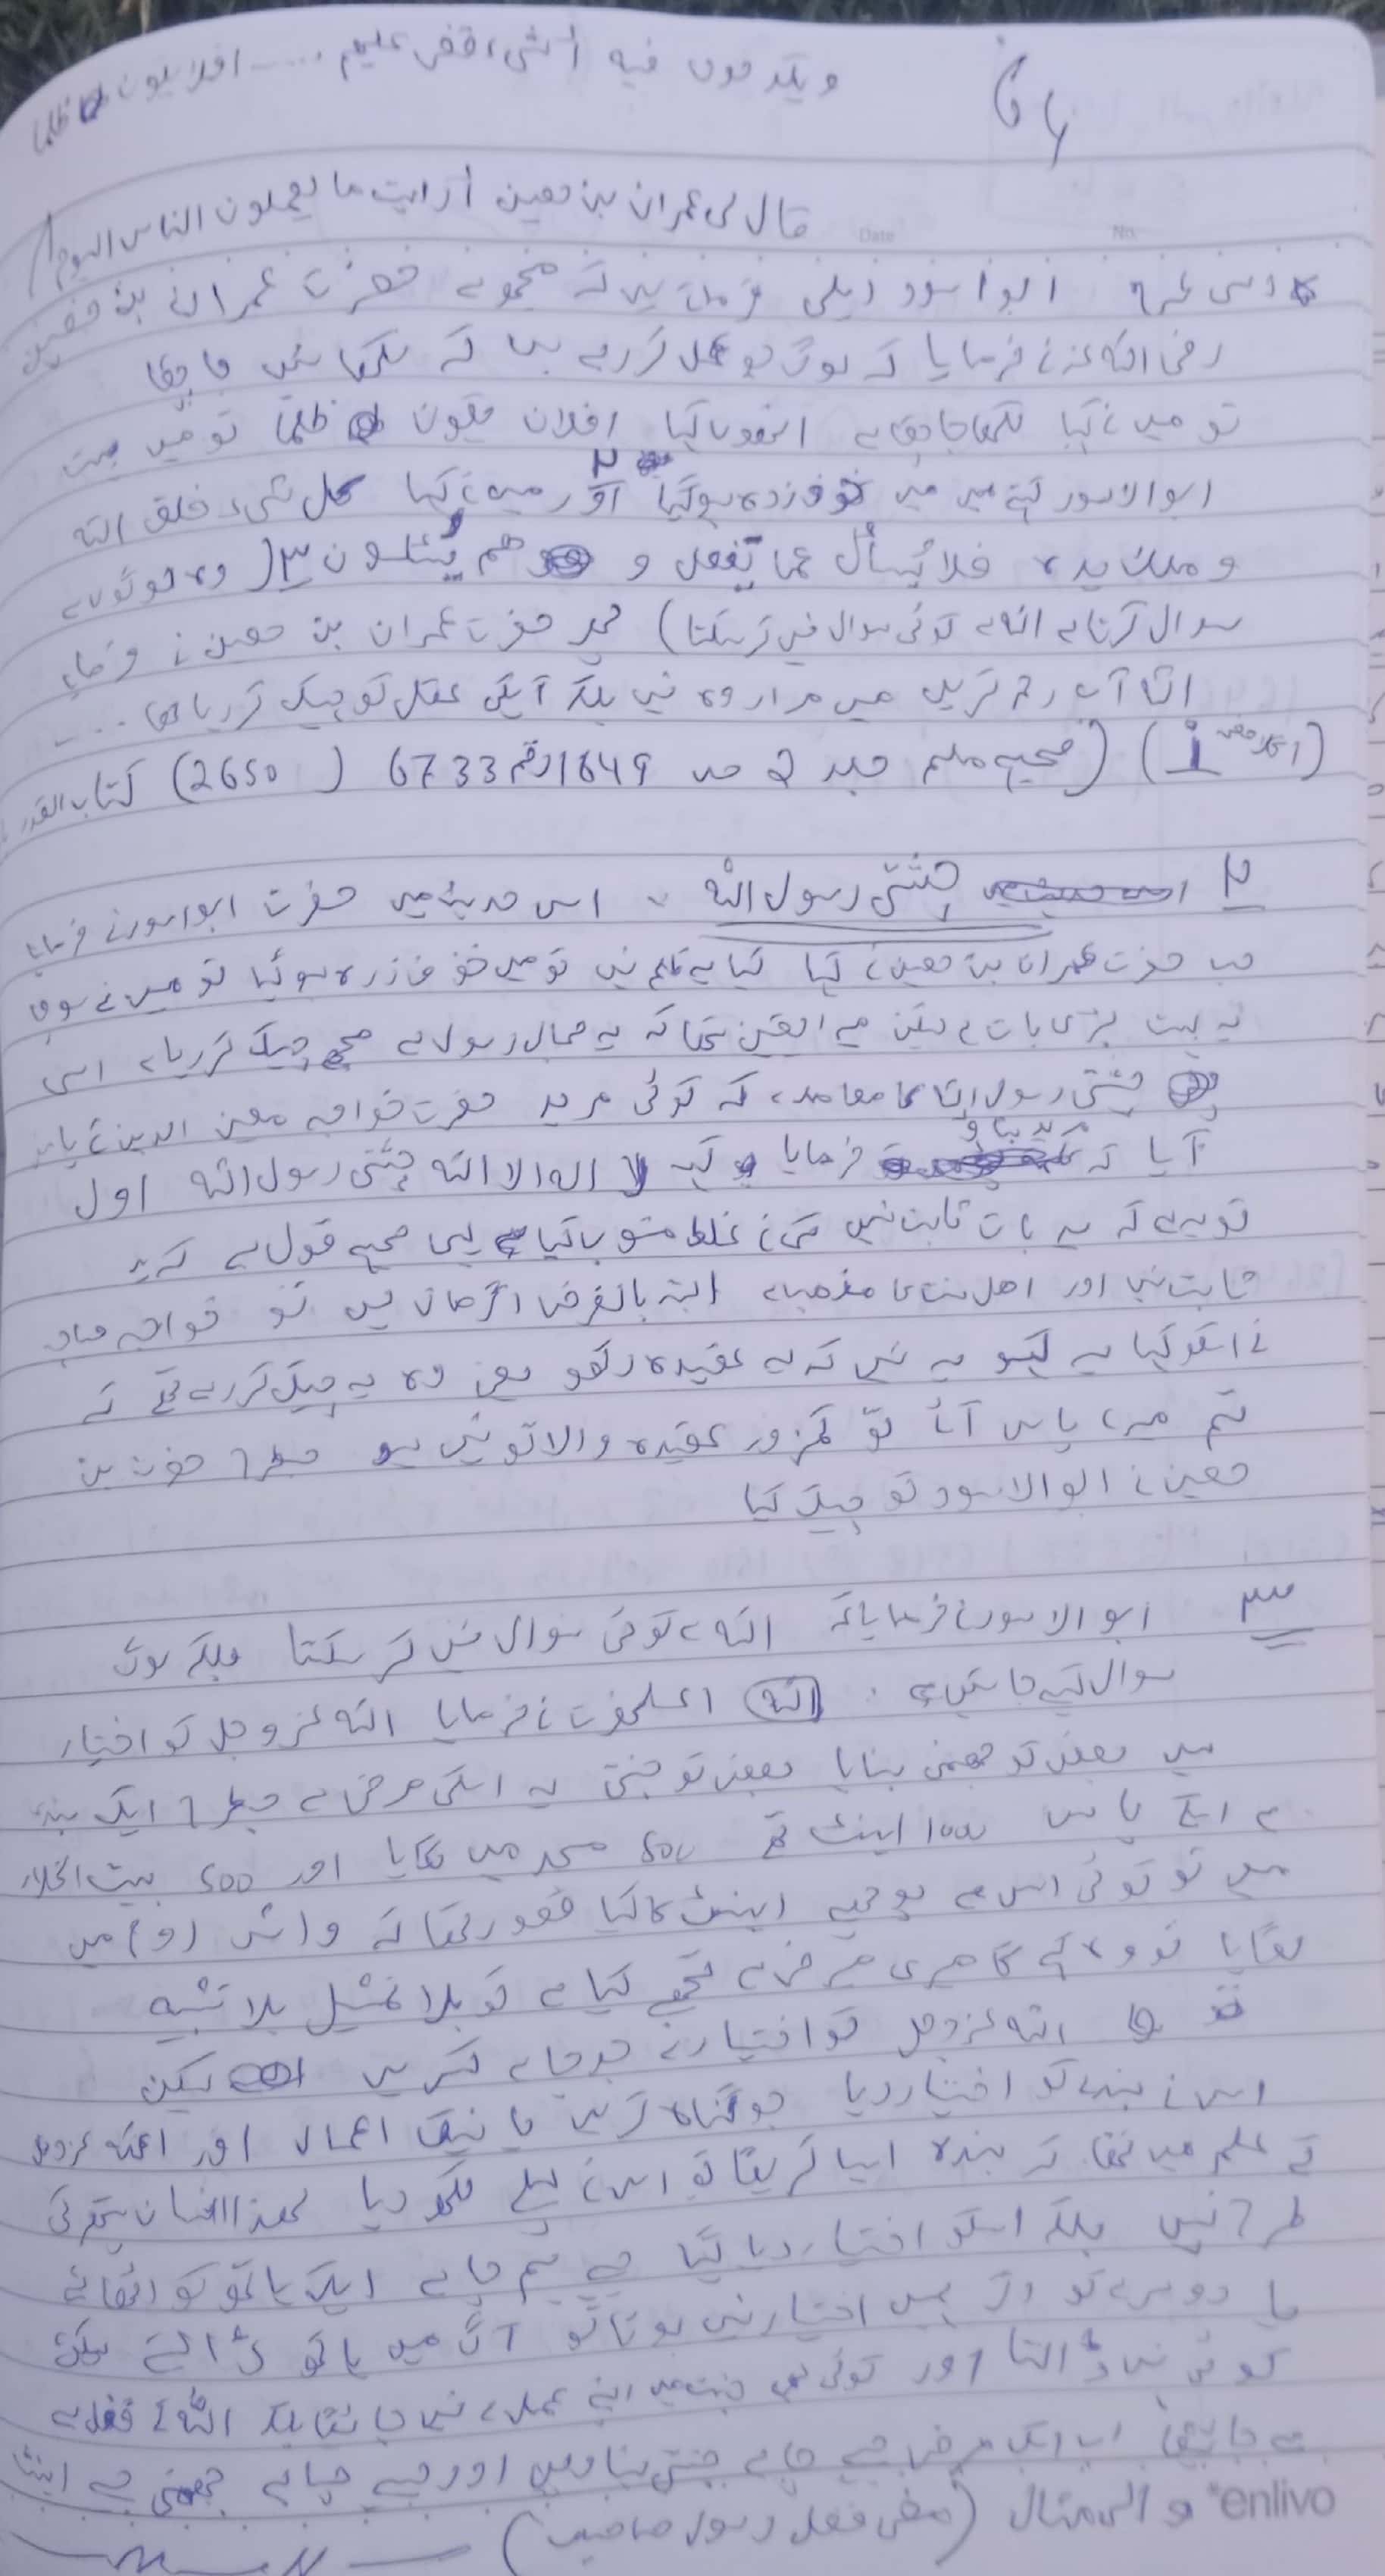 و یکدحون فیہ أشیء قضی علیهم ..... افلا یکون ظلما
64
قال لی عمران بن حصین أرایت ما یعملون الناس الیوم
Date No.
ابو اسود دیلی فرماتے ہیں کہ مجھے حضرت عمران بن حصین
رضی اللہ عنہ نے فرمایا کہ لوگ جو عمل کر رہے ہیں کہ لکھا جا چکا
تو میں نے کہا لکھا جا چکا ہے انھوں کہا افلان یکون ظلمًا تو میں بہت
ابو الاسود کہتے ہیں میں خوفزدہ ہوگیا ٢ اور میں نے کہا کل شیء خلق اللہ
و ملک یدہ فلا یُسأل عما یفعل و هم یُسئلون ٣ (وہ لوگوں سے
سوال کرتا ہے اللہ سے کوئی سوال نہیں کر سکتا) پھر حضرت عمران بن حصین نے فرمایا
اللہ آپ رحم کریں میری مراد وہ نہیں بلکہ آپکی عقل کو چیک کر رہا تھا ....
(اگلا صفحہ i) (صحیح مسلم جلد 2 صہ 1649 رقم 6733 (2650) کتاب القدر
٢ چشتی رسول اللہ ، اس حدیث میں حضرت ابو اسود نے فرمایا
جب حضرت عمران بن حصین نے کہا کیا یہ ظلم نہیں تو میں خوفزدہ ہوگیا تو میں نے سوچا
یہ بہت بڑی بات ہے لیکن مجھے یقین تھا کہ یہ صحابی رسول ہے مجھے چیک کر رہا ہے اسی
چشتی رسول اللہ کا معاملہ ہے کہ کوئی مرید حضرت خواجہ معین الدین کے پاس
آیا کہ مرید بناؤ فرمایا کہہ لا الہ الا اللہ چشتی رسول اللہ اول
تو یہ ہے کہ یہ بات ثابت نہیں کسی نے غلط منسوب کیا ہے یہی صحیح قول ہے کہ یہ
ثابت نہیں اور اهل سنت کا مذھب ہے البتہ بالفرض اگر مان لیں تو خواجہ صاحب
نے اسکو کہا یہ کہو یہ نہیں کہ یہ عقیدہ رکھو یعنی وہ یہ چیک کر رہے تھے کہ
تم میرے پاس آئے تو کمزور عقیدہ والا تو نہیں ہو جسطرح حضرت بن
حصین نے ابو الاسود کو چیک کیا
٣ ابو الاسود نے فرمایا کہ اللہ سے کوئی سوال نہیں کر سکتا بلکہ لوگ
سوال کیے جائیں گے . اللہ اعلحضرت نے فرمایا اللہ عزوجل کو اختیار
ہیں بعض کو جھنمی بنایا بعض کو جنتی یہ اسکی مرضی ہے جسطرح ایک بندہ
ہے اسکے پاس 1000 اینٹ تھے 500 مسجد میں لگایا اور 500 بیت الخلاء
میں تو کوئی اس سے پوچھے اینٹ کا کیا قصور تھا کہ واش روم میں
لگایا تو وہ کہے گا میری مرضی ہے تجھے کیا ہے تو بلا تمثیل بلا تشبیہ
اللہ عزوجل کو اختیار ہے جو چاہے کریں لیکن
اس نے بندے کو اختیار دیا جو گناہ کریں یا نیک اعمال اور اللہ عزوجل
کے علم میں تھا کہ بندہ ایسا کریگا تو اس نے پہلے لکھ دیا لھذا انسان پتھر کی
طرح نہیں بلکہ اسکو اختیار دیا گیا ہے ہم چاہے ایک ہاتھ کو اٹھائے
یا دوسرے کو اگر ہمیں اختیار نہیں ہوتا تو آگ میں ہاتھ ڈالتے لیکن
کوئی نہیں ڈالتا اور کوئی بھی جنت میں اپنے عمل سے نہیں جائیگا بلکہ اللہ کے فضل سے
ہی جائیگا اب اسکی مرضی جسے چاہے جنتی بنا دیں اور جسے چاہے جھنمی جسے اینٹ
والی مثال (مفتی فضل رسول صاحب)
enlivo